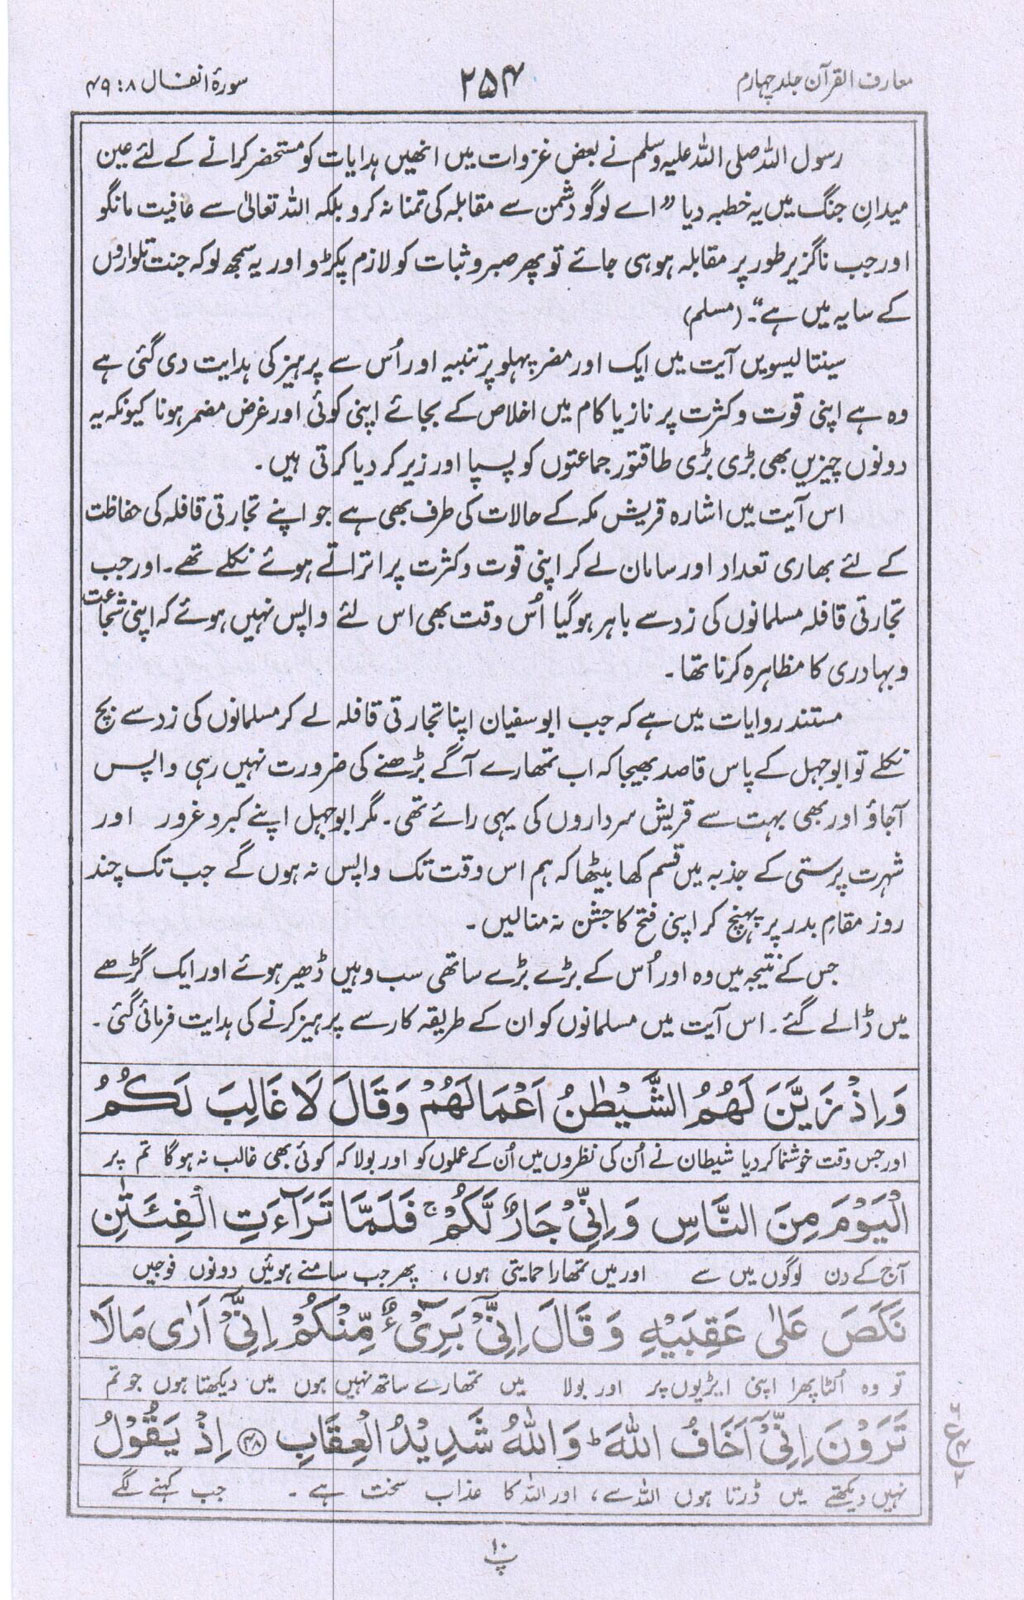 معارف القرآن جلد چہارم
۲۵۴
سورۂ انفال ۸ : ۴۹
رسول اللہ صلی اللہ علیہ وسلم نے بعض غزوات میں انھیں ہدایات کو مستحضر کرانے کے لئے عین
میدانِ جنگ میں یہ خطبہ دیا ”اے لوگو دشمن سے مقابلہ کی تمنا نہ کرو بلکہ اللہ تعالیٰ سے عافیت مانگو
اور جب ناگزیر طور پر مقابلہ ہو ہی جائے تو پھر صبر و ثبات کو لازم پکڑو اور یہ سمجھ لو کہ جنت تلواروں
کے سایہ میں ہے“۔ (مسلم)
سینتالیسویں آیت میں ایک اور مضر پہلو پر تنبیہ اور اُس سے پرہیز کی ہدایت دی گئی ہے
وہ ہے اپنی قوت و کثرت پر ناز یا کام میں اخلاص کے بجائے اپنی کوئی اور غرض مضمر ہونا کیونکہ یہ
دونوں چیزیں بھی بڑی بڑی طاقتور جماعتوں کو پسپا اور زیر کر دیا کرتی ہیں۔
اس آیت میں اشارہ قریش مکہ کے حالات کی طرف بھی ہے جو اپنے تجارتی قافلہ کی حفاظت
کے لئے بھاری تعداد اور سامان لے کر اپنی قوت و کثرت پر اتراتے ہوئے نکلے تھے۔ اور جب
تجارتی قافلہ مسلمانوں کی زد سے باہر ہو گیا اُس وقت بھی اس لئے واپس نہیں ہوئے کہ اپنی شجاعت
و بہادری کا مظاہرہ کرنا تھا۔
مستند روایات میں ہے کہ جب ابوسفیان اپنا تجارتی قافلہ لے کر مسلمانوں کی زد سے بچ
نکلے تو ابوجہل کے پاس قاصد بھیجا کہ اب تمھارے آگے بڑھنے کی ضرورت نہیں رہی واپس
آجاؤ اور بھی بہت سے قریش سرداروں کی یہی رائے تھی۔ مگر ابوجہل اپنے کبر و غرور اور
شہرت پرستی کے جذبہ میں قسم کھا بیٹھا کہ ہم اس وقت تک واپس نہ ہوں گے جب تک چند
روز مقامِ بدر پر پہنچ کر اپنی فتح کا جشن نہ منالیں۔
جس کے نتیجہ میں وہ اور اُس کے بڑے بڑے ساتھی سب وہیں ڈھیر ہوئے اور ایک گڑھے
میں ڈالے گئے۔ اس آیت میں مسلمانوں کو ان کے طریقہ کار سے پرہیز کرنے کی ہدایت فرمائی گئی۔
وَاِذْ زَيَّنَ لَهُمُ الشَّيْطٰنُ اَعْمَالَهُمْ وَقَالَ لَا غَالِبَ لَكُمُ
اور جس وقت خوشنما کر دیا شیطان نے اُن کی نظروں میں اُن کے عملوں کو اور بولا کہ کوئی بھی غالب نہ ہوگا تم پر
الْيَوْمَ مِنَ النَّاسِ وَاِنِّيْ جَارٌ لَّكُمْ ۚ فَلَمَّا تَرَآءَتِ الْفِئَتٰنِ
آج کے دن لوگوں میں سے اور میں تمھارا حمایتی ہوں، پھر جب سامنے ہوئیں دونوں فوجیں
نَكَصَ عَلٰى عَقِبَيْهِ وَقَالَ اِنِّيْ بَرِيْٓءٌ مِّنْكُمْ اِنِّيْٓ اَرٰى مَالَا
تو وہ اُلٹا پھرا اپنی ایڑیوں پر اور بولا میں تمھارے ساتھ نہیں ہوں میں دیکھتا ہوں جو تم
تَرَوْنَ اِنِّيْٓ اَخَافُ اللّٰهَ ؕ وَاللّٰهُ شَدِيْدُ الْعِقَابِ ﴿۴۸﴾ اِذْ يَقُوْلُ
نہیں دیکھتے میں ڈرتا ہوں اللہ سے، اور اللہ کا عذاب سخت ہے۔ جب کہنے لگے
۱۰
پ